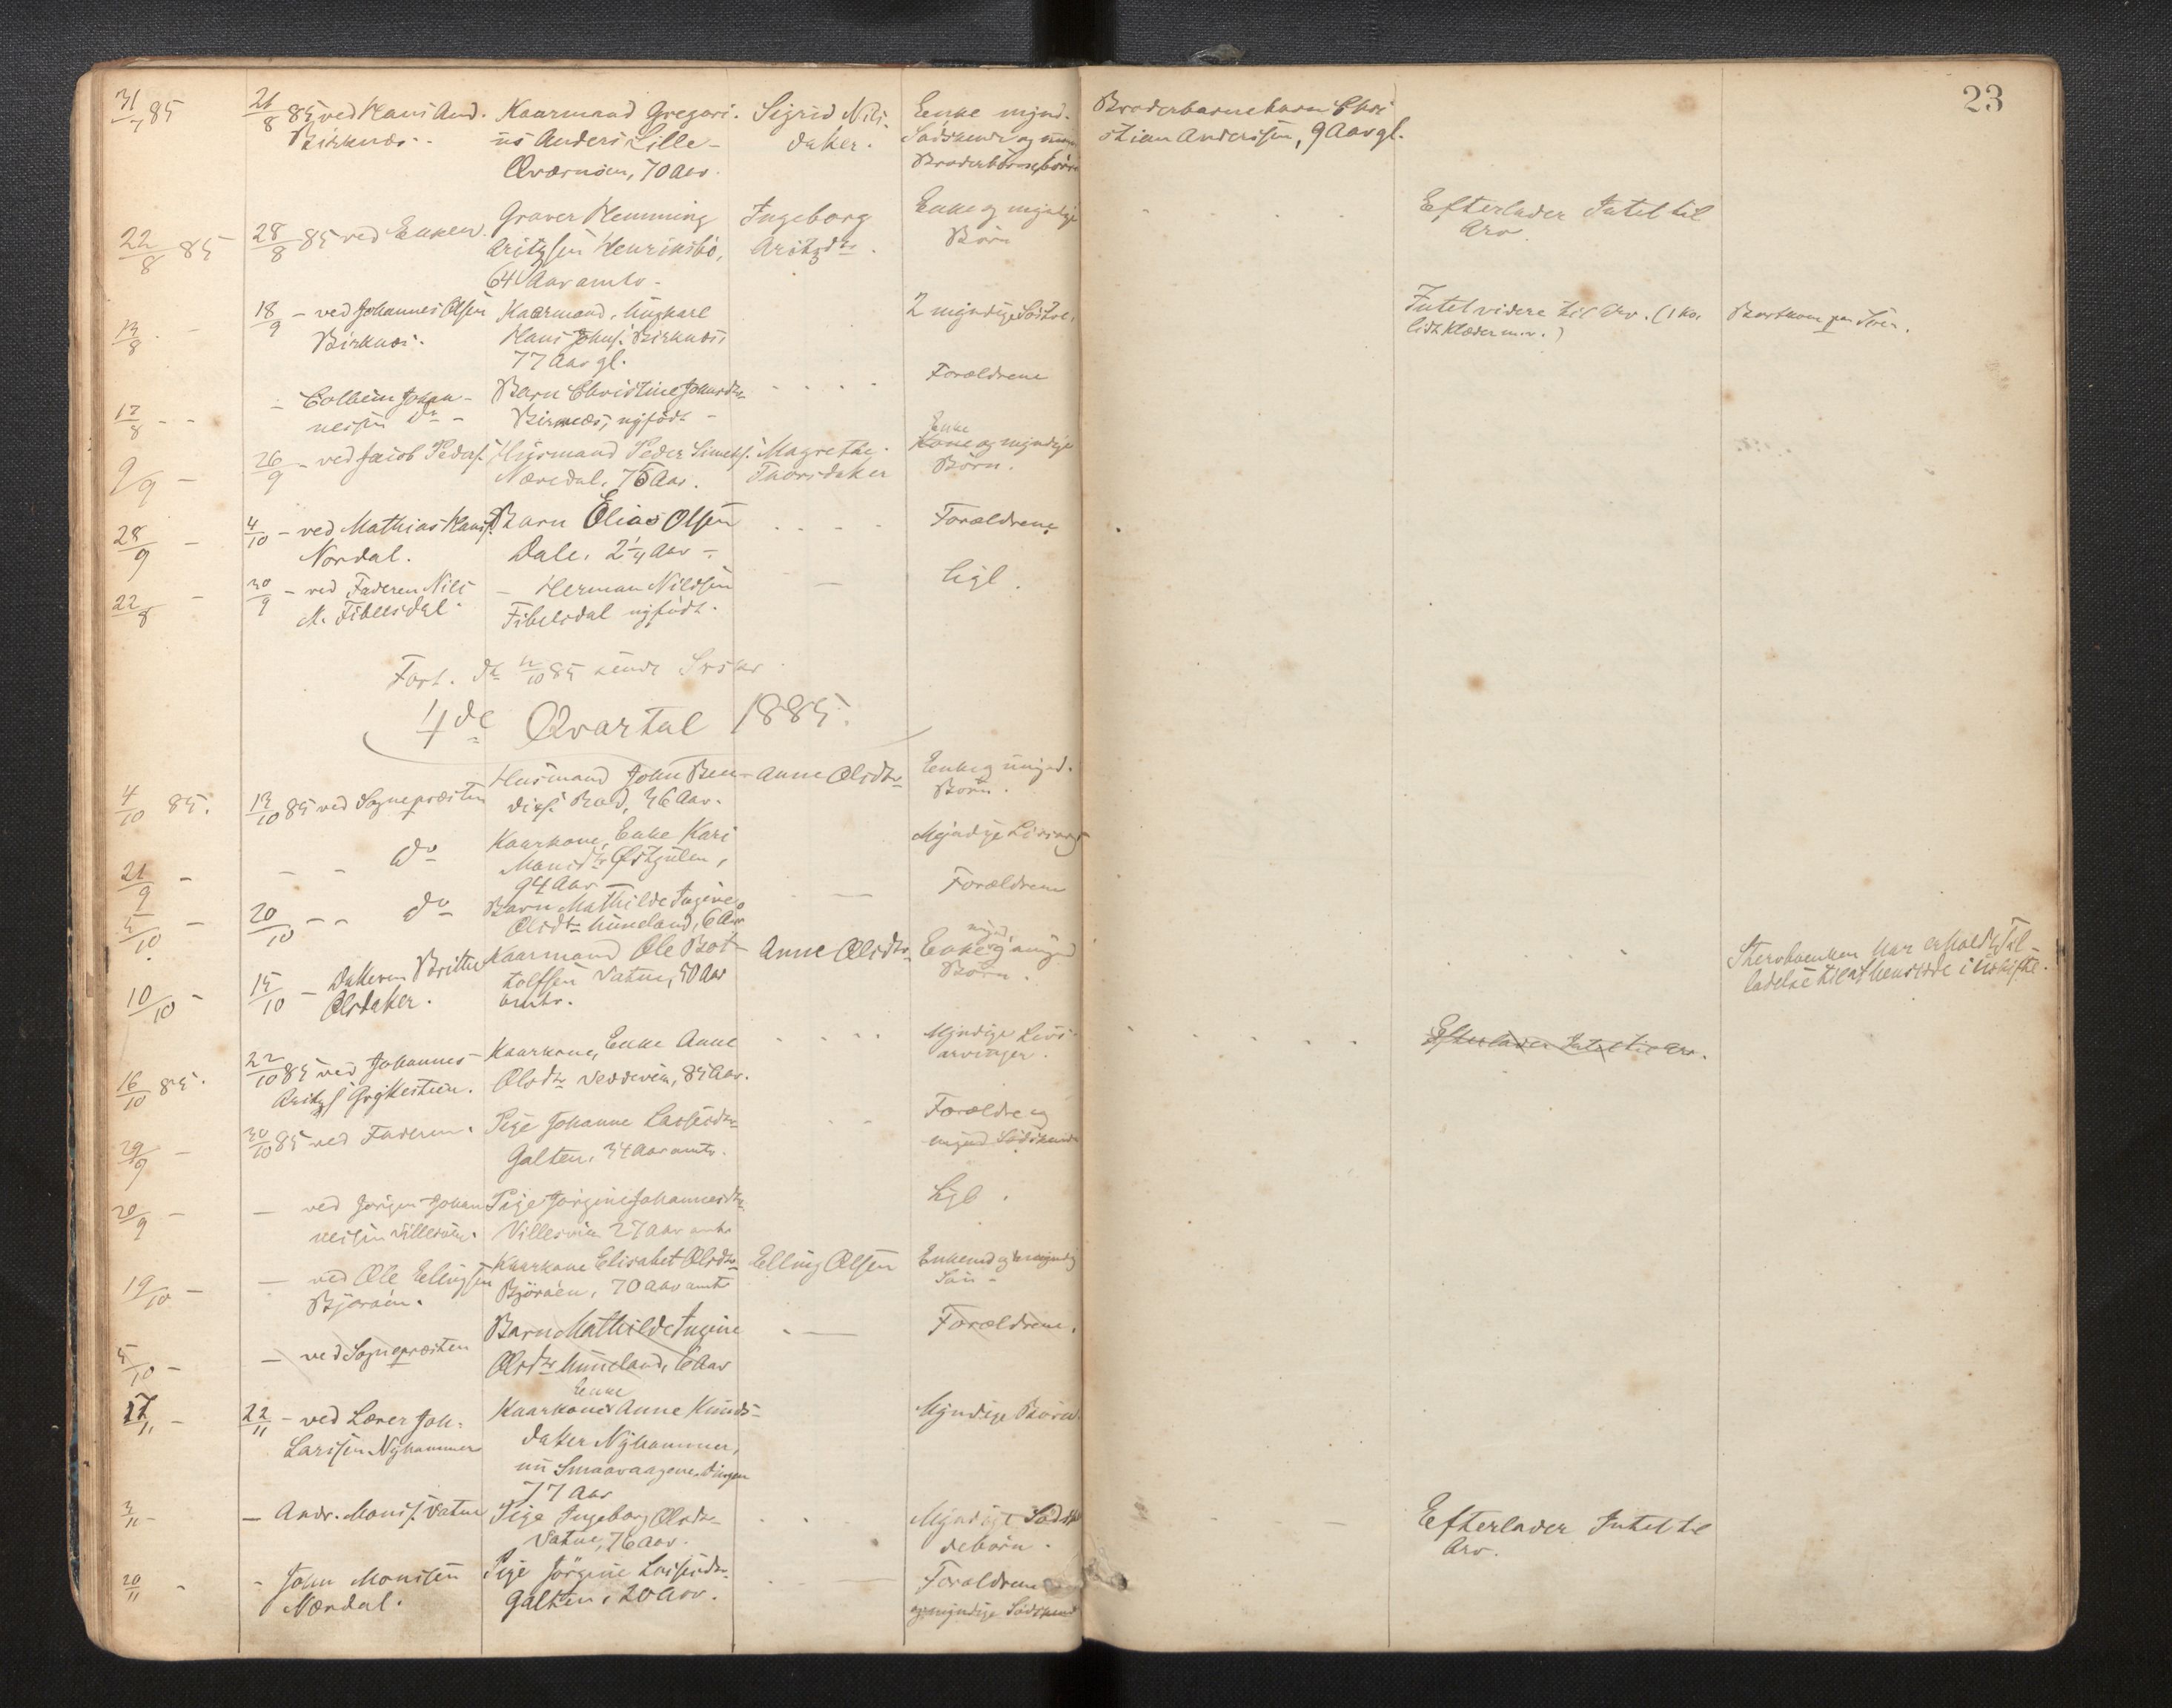 23
31/7 85
26/8 85 ved Hans And.
Birknæs.
Kaarmand Gregori-
us Anders. Lille-
Qværnøen, 70 Aar.
Sigrid Nils-
datter.
Enke mynd.
Sødskende og
Broderbørnsbørn
Broderbarnebarn Chri
stian Anderssen, 9 Aar gl.
22/8 85
28/8 85 ved Enken.
Graver Hemming
Henriksbø,
64 Aar amtr.
Ingeborg
Enke og myndige
Børn
Efterlader Intet til
Arv.
13/8 -
18/9 - ved Johannes Olsen
Birknæs.
Kaarmand, Ungkarl
Hans Johns. Birknæs,
77 Aar gl.
2 myndige Søstre.
Intet videre til Arv. (1 Ko,
lidt Klæder m.v.)
17/8 - -
- Colbein Johan-
nessen do -
Barn Christine Johnsdtr
Birknæs, nyfødt -
Forældrene
9/9 -
26/9 - ved Jacob Peders.
Husmand Peder Simons.
Nøredal, 75 Aar.
Magrethe
Thorsdatter
Enke
Kone og myndige
Børn.
28/9 -
4/10 - ved Mathias Hans.
Nordal.
Barn Elias Olsen
Dale, 2 1/4 Aar -
Forældrene
22/8 -
30/9 - ved Faderen Nils
M. Fibelsdal.
- Herman Nilssen
Fibelsdal nyfødt.
ligl.
Fort. 10 85 sendt
4de Qvartal 1885.
4/10 85.
13/10 85 ved Sognepræsten
Husmand John Ben-
dix. 36 Aar.
Anne Olsdtr
Enke og umynd.
Børn.
21/9 -
- - do
Kaarkone, Enke Kari
Monsdtr Østgulen,
94 Aar -
Myndige Livsarv
5/10 -
20/10 - - do
Barn Mathilde Ingine
Olsdtr Hundeland, 6 Aar
Forældrene
10/10 -
15/10 - Datteren Brithe
Olsdatter.
Kaarmand Ole Bot-
tolfsen Vatne, 50 Aar
amtr.
Anne Olsdtr
mynd.
Enke og umynd
Børn.
Stervboenken har erholdt Til-
ladelse til at hensidde i uskifte.
16/10 85.
22/10 85 ved Johannes
Kaarkone, Enke Anne
Olsdtr 85 Aar.
Myndige Livs-
arvinger.
Efterlader Intet til Arv.
29/9 -
30/10 85 ved Faderen.
Pige Johanne Lassesdtr
Galten, 34 Aar amtr.
Forældre og
mynd Sødskende
20/9 -
- ved Jørgen Johan
nessen Villesvin.
Pige Jørgine Johannesdtr
Villesvin 27 Aar amtr
Ligl.
19/10 -
- ved Ole Ellingsen
Bjøraen.
Kaarkone Elisabet Olsdtr
Bjøraen, 70 Aar amtr
Elling Olsen
Enkemd og 1 myndig
Søn -
5/10 -
- ved Sognepræsten
Barn Mathilde Ingine
Olsdtr Hundeland, 6 Aar
Forældrene.
17/11 -
22/11 - ved Lærer Joh.
Larssen Nyhammer
Enke
Kaarkone Anne Knuds-
datter Nyhammer,
nu Smaavaagene,
77 Aar
Myndige Børn.
3/11 -
- Andr. Mons. Vatne
Pige Ingeborg Olsdtr
Vatne, 76 Aar.
Myndigt Sødsken
debørn.
Efterlader Intet til
Arv.
20/11 -
- John Monssen
Nærdal.
Pige Jørgine Lassesdtr
Galten, 20 Aar.
Forældrene
og myndige Sødskend